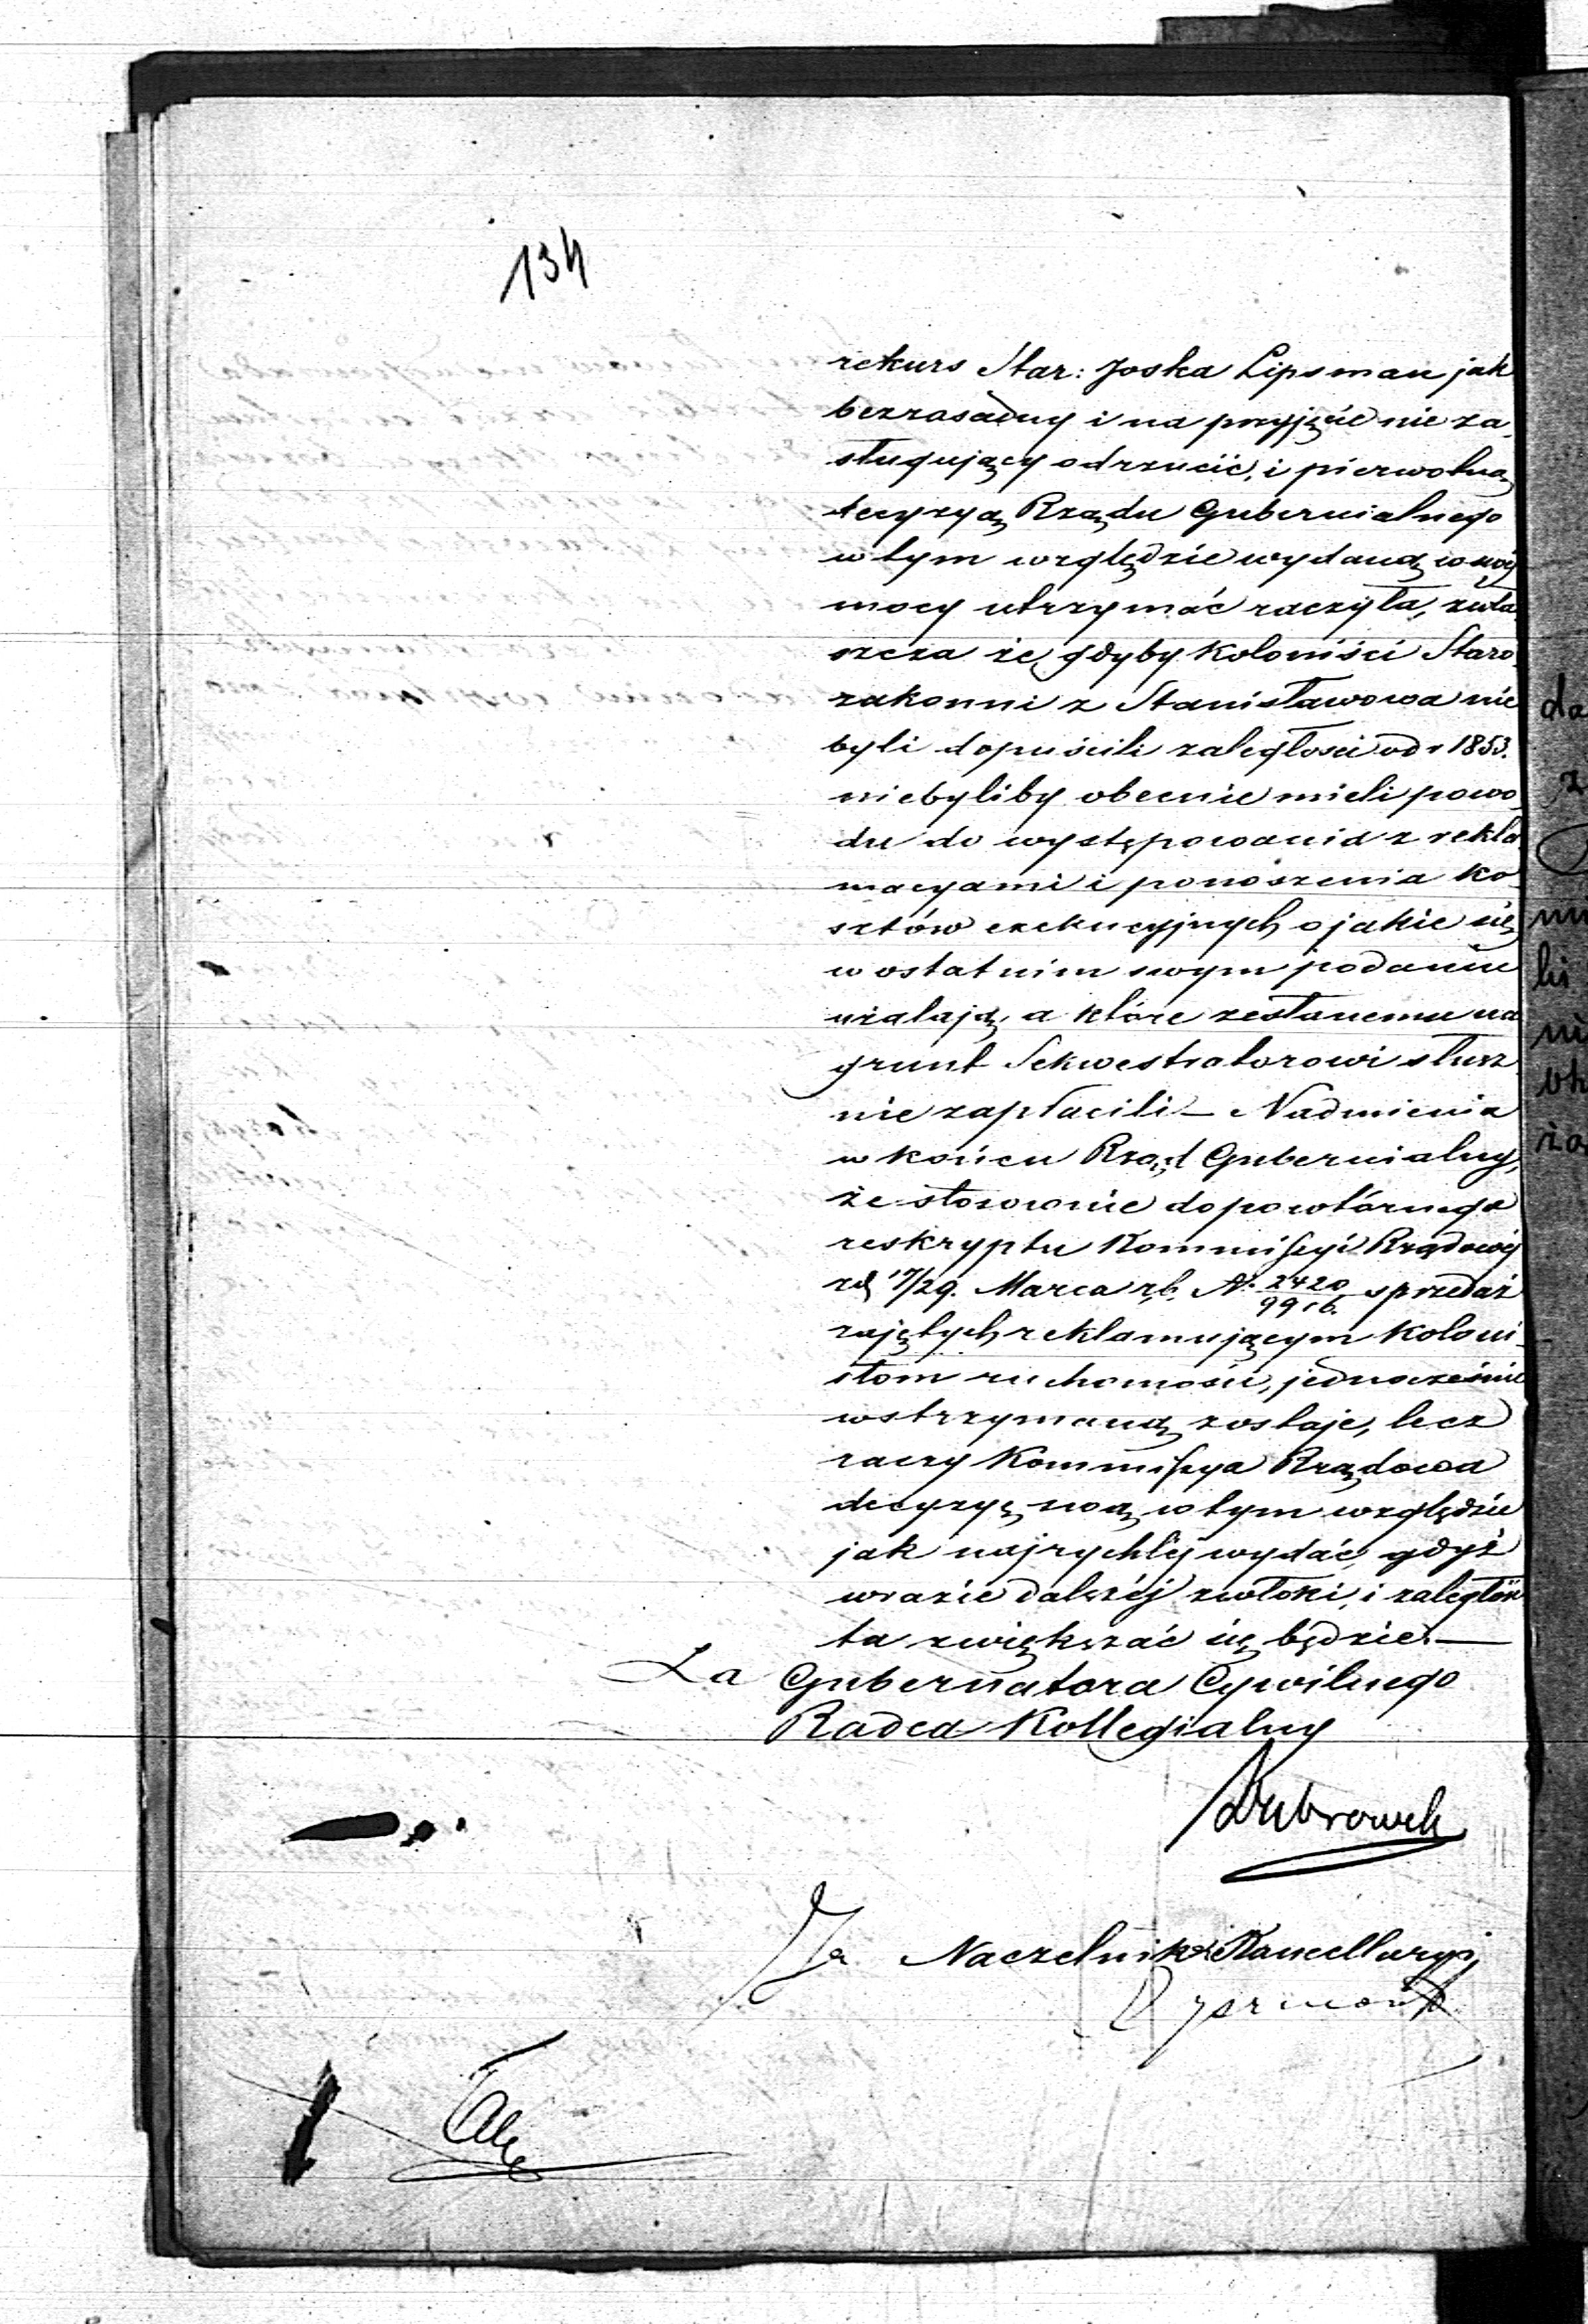 134
rekurs Star: Joska Lipsman jak
bezzasadny i na przyjęcie nie za
sługujący odrzucić, i pierwotną
decyzyą Rządu Gubernialnego
w tym względzie wydaną w swéj
mocy utrzymać raczyła, zwła
szcza że, gdyby koloniści Staro
zakonni z Stanisławowa nie
byli dopuścili zaległości od r 1853.
niebyliby obecnie mieli powo
du do występowania z rekla
macyami i ponoszenia ko
sztów exekucyjnych o jakie się
w ostatnim swym podaniu
użalają, a które zesłanemu na
grunt Sekwestratorowi słusz
nie zapłacili – Nadmienia
w końcu Rząd Gubernialny,
że stosownie do powtórnego
reskryptu Kommissyi Rządowéj
zd 17/29. Marca rb. N. 2420/9916. sprzedaż
zajętych reklamującym koloni
stom ruchomości, jednocześnie
wstrzymaną zostaje, lecz
raczy Kommissya Rządowa
decyzyę swą w tym względzie
jak najrychléj wydać, gdyż
w razie dalszéj zwłoki, i zaległość
ta zwiększać się będzie. —
Za Gubernatora Cywilnego
Radca Kollegialny
Za Naczelnika Kancellaryi
da
z
ża